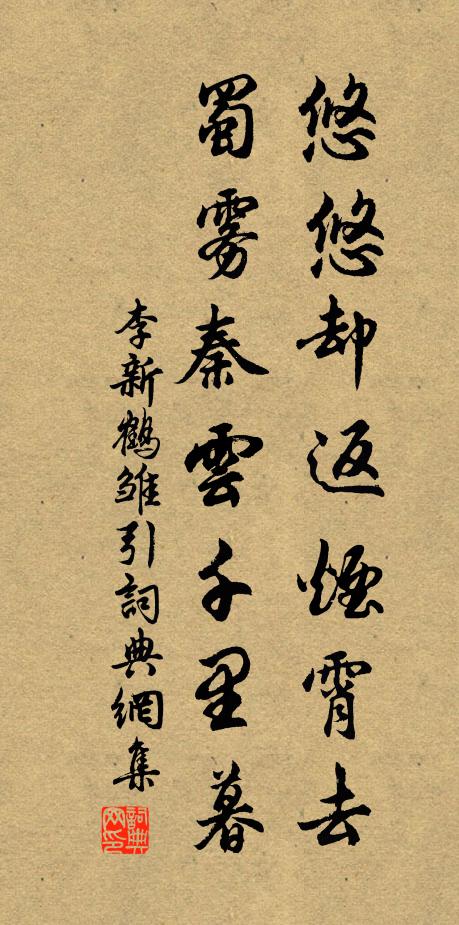 悠悠却返煙霄去
蜀雾秦雲千里暮
李新鶴雏引詞典網集
詞典
网印